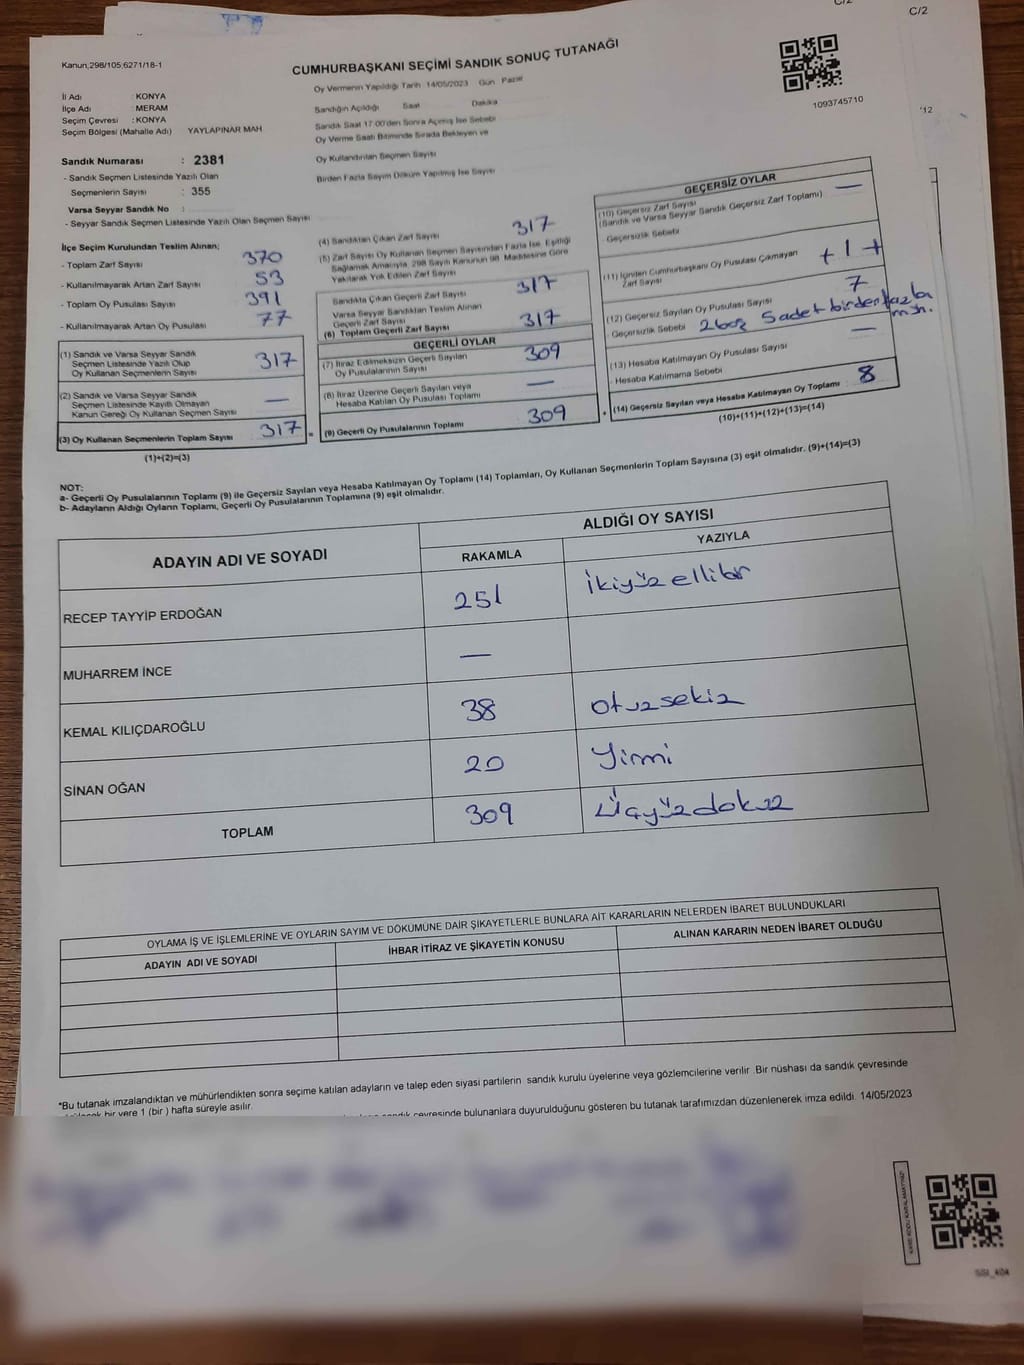 C/2
C/2
Kanun,298/105;6271/18-1
CUMHURBAŞKANI SEÇİMİ SANDIK SONUÇ TUTANAĞI
1093745710
'12
İl Adı : KONYA
İlçe Adı : MERAM
Seçim Çevresi : KONYA
Seçim Bölgesi (Mahalle Adı) YAYLAPINAR MAH
Oy Vermenin Yapıldığı Tarih 14/05/2023 Gün Pazar
Sandığın Açıldığı Saat Dakika
Sandık Saat 17:00'den Sonra Açılmış İse Sebebi
Oy Verme Saati Bitiminde Sırada Bekleyen ve
Oy Kullandırılan Seçmen Sayısı
Birden Fazla Sayım Döküm Yapılmış İse Sayısı
Sandık Numarası : 2381
- Sandık Seçmen Listesinde Yazılı Olan
Seçmenlerin Sayısı : 355
Varsa Seyyar Sandık No :
- Seyyar Sandık Seçmen Listesinde Yazılı Olan Seçmen Sayısı
İlçe Seçim Kurulundan Teslim Alınan;
- Toplam Zarf Sayısı 370
- Kullanılmayarak Artan Zarf Sayısı 53
- Toplam Oy Pusulası Sayısı 391
- Kullanılmayarak Artan Oy Pusulası 77
(1) Sandık ve Varsa Seyyar Sandık
Seçmen Listesinde Yazılı Olup
Oy Kullanan Seçmenlerin Sayısı 317
(2) Sandık ve Varsa Seyyar Sandık
Seçmen Listesinde Kayıtlı Olmayan
Kanun Gereği Oy Kullanan Seçmen Sayısı —
(3) Oy Kullanan Seçmenlerin Toplam Sayısı 317 =
(1)+(2)=(3)
(4) Sandıktan Çıkan Zarf Sayısı 317
(5) Zarf Sayısı Oy Kullanan Seçmen Sayısından Fazla İse, Eşitliği
Sağlamak Amacıyla, 298 Sayılı Kanunun 98. Maddesine Göre
Yakılarak Yok Edilen Zarf Sayısı
Sandıkta Çıkan Geçerli Zarf Sayısı 317
Varsa Seyyar Sandıktan Teslim Alınan
Geçerli Zarf Sayısı
(6) Toplam Geçerli Zarf Sayısı 317
GEÇERLİ OYLAR
(7) İtiraz Edilmeksizin Geçerli Sayılan
Oy Pusulalarının Sayısı 309
(8) İtiraz Üzerine Geçerli Sayılan veya
Hesaba Katılan Oy Pusulası Toplamı —
(9) Geçerli Oy Pusulalarının Toplamı 309 +
GEÇERSİZ OYLAR
(10) Geçersiz Zarf Sayısı —
(Sandık ve Varsa Seyyar Sandık Geçersiz Zarf Toplamı)
- Geçersizlik Sebebi
(11) İçinden Cumhurbaşkanı Oy Pusulası Çıkmayan
Zarf Sayısı + 1 +
(12) Geçersiz Sayılan Oy Pusulası Sayısı 7
- Geçersizlik Sebebi 2 boş 5 adet birden fazla
müh.
(13) Hesaba Katılmayan Oy Pusulası Sayısı —
- Hesaba Katılmama Sebebi
(14) Geçersiz Sayılan veya Hesaba Katılmayan Oy Toplamı : 8
(10)+(11)+(12)+(13)=(14)
NOT:
a- Geçerli Oy Pusulalarının Toplamı (9) ile Geçersiz Sayılan veya Hesaba Katılmayan Oy Toplamı (14) Toplamları, Oy Kullanan Seçmenlerin Toplam Sayısına (3) eşit olmalıdır. (9)+(14)=(3)
b- Adayların Aldığı Oyların Toplamı, Geçerli Oy Pusulalarının Toplamına (9) eşit olmalıdır.
ADAYIN ADI VE SOYADI
ALDIĞI OY SAYISI
RAKAMLA YAZIYLA
RECEP TAYYİP ERDOĞAN 251 İkiyüz ellibir
MUHARREM İNCE —
KEMAL KILIÇDAROĞLU 38 Otuzsekiz
SİNAN OĞAN 20 Yirmi
TOPLAM 309 Üçyüzdokuz
OYLAMA İŞ VE İŞLEMLERİNE VE OYLARIN SAYIM VE DÖKÜMÜNE DAİR ŞİKAYETLERLE BUNLARA AİT KARARLARIN NELERDEN İBARET BULUNDUKLARI
ADAYIN ADI VE SOYADI İHBAR İTİRAZ VE ŞİKAYETİN KONUSU ALINAN KARARIN NEDEN İBARET OLDUĞU
*Bu tutanak imzalandıktan ve mühürlendikten sonra seçime katılan adayların ve talep eden siyasi partilerin sandık kurulu üyelerine veya gözlemcilerine verilir .Bir nüshası da sandık çevresinde
bir yere 1 (bir ) hafta süreyle asılır.
sandık çevresinde bulunanlara duyurulduğunu gösteren bu tutanak tarafımızdan düzenlenerek imza edildi. 14/05/2023
KARE KODU KARALAMAYINIZ!